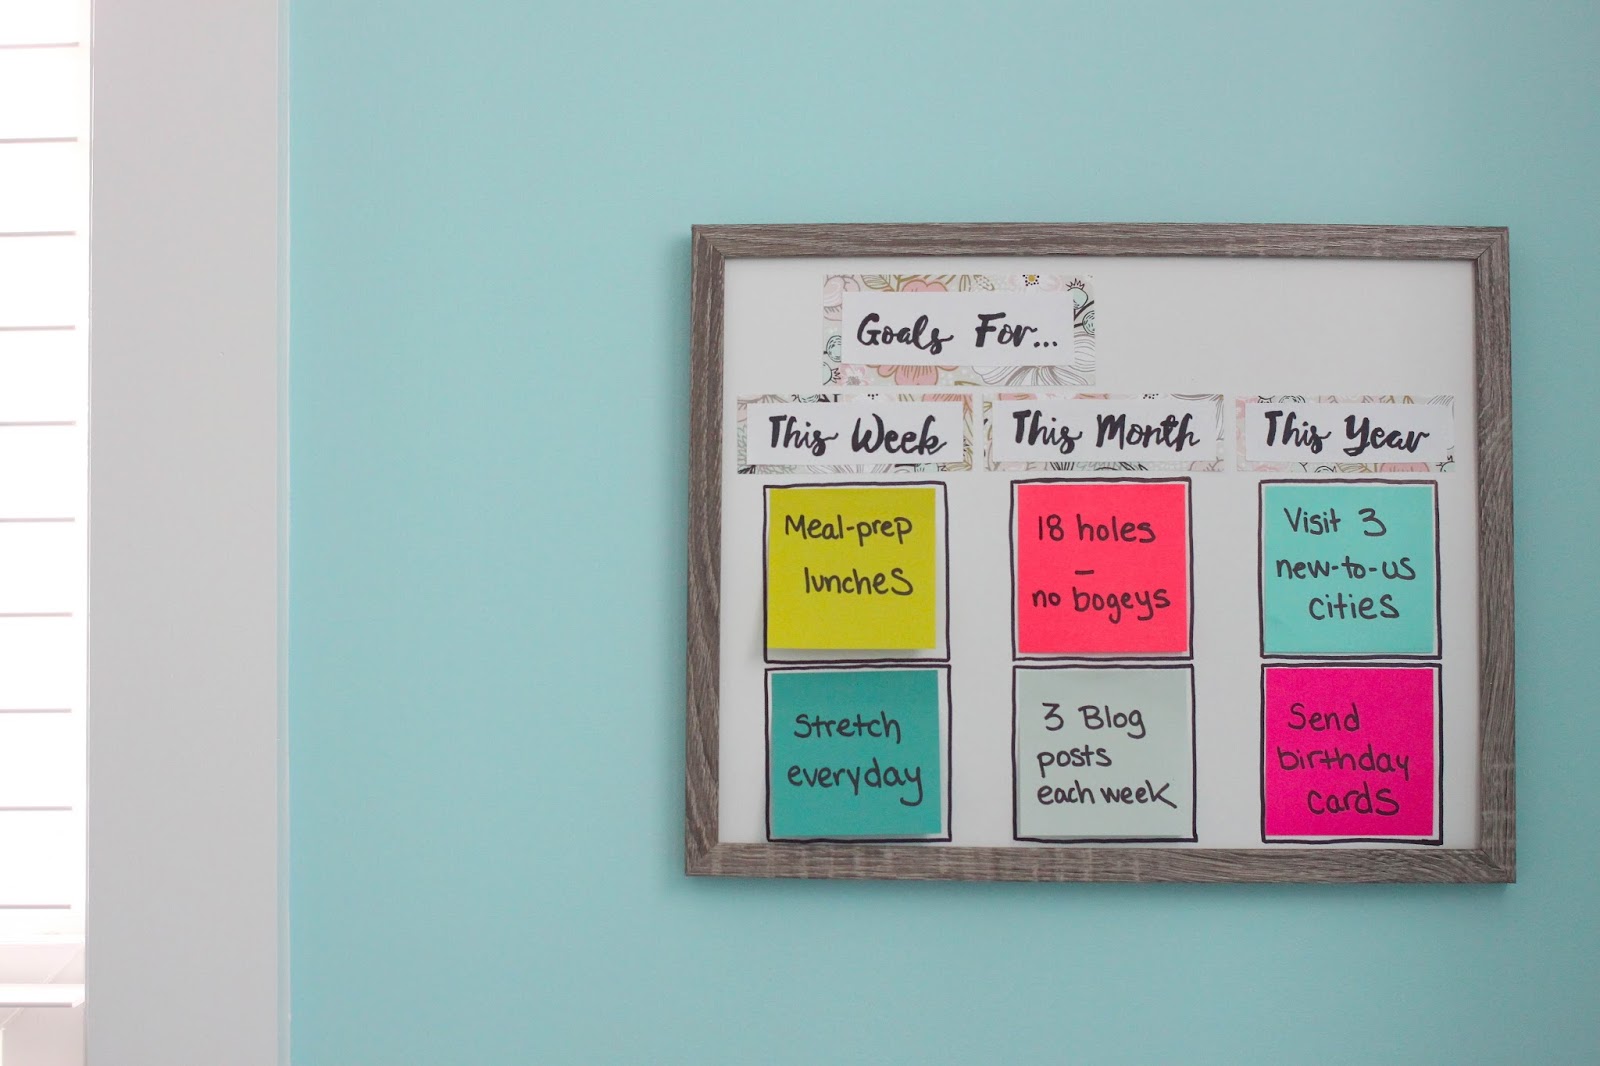 Goals For...
This Week
This Month
This Year
Meal-prep
lunches
18 holes
–
no bogeys
Visit 3
new-to-us
cities
Stretch
everyday
3 Blog
posts
each week
Send
birthday
cards